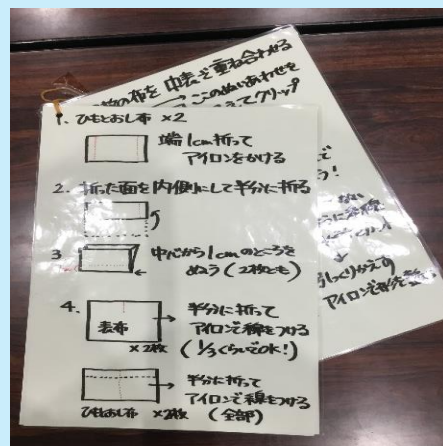 の布を 中表で重ね合わせる
このぬいあわせを
クリップ
1. ひもとおし布 ×2
端1cm折って
アイロンをかける
2. 折った面を内側にして半分に折る
3 中心から1cmのところを
ぬう(2枚とも)
4.
表布
×2枚
半分に折って
アイロンで線をつける
(1/3くらいでOK!)
半分に折って
アイロンで線をつける
(全部)
ひもとおし布 ×2枚